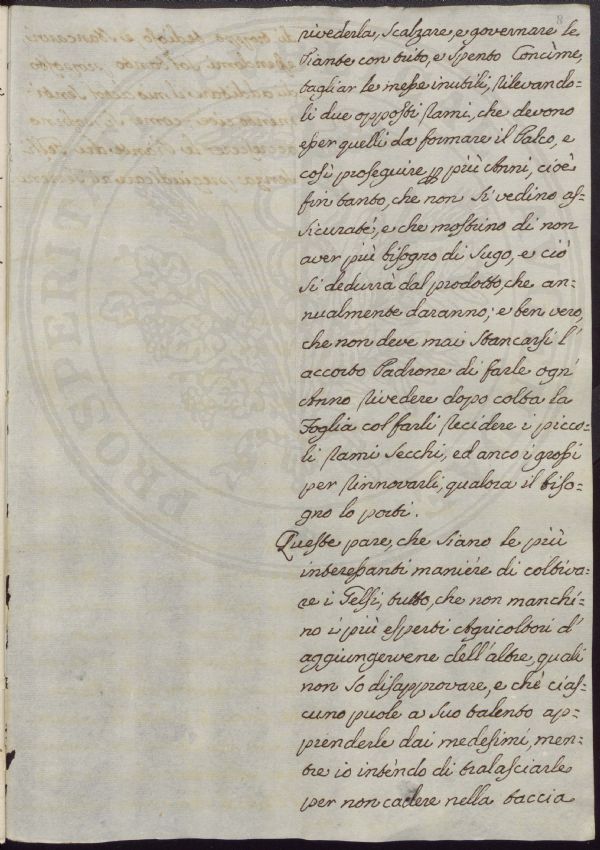 8
rivederla, Scalzare, e governare le
Piante con trito, e spento Concime,
tagliar le messe inutili, rilevando=
li due opposti rami, che devono
esser quelli da formare il Palco, e
così proseguire più Anni, cioè
fin tanto, che non si vedino as=
sicurate, e che mostrino di non
aver più bisogno di sugo, e ciò
si dedurrà dal prodotto, che an=
nualmente daranno; e ben vero,
che non deve mai stancarsi l'
accorto Padrone di farle ogn'
Anno rivedere dopo colta la
Foglia col farli recidere i picco=
li rami secchi, ed anco i grossi
per rinnovarli, qualora il biso=
gno lo porti.
Queste pare, che siano le più
interessanti maniere di coltiva=
re i Gelsi, tutto, che non manchi=
no i più esperti Agricoltori d'
aggiungervene dell'altre, quali
non so disapprovare, e che cias=
cuno puole a suo talento ap=
prenderle dai medesimi, men=
tre io intendo di tralasciarle
per non cadere nella taccia
PROSPERITA